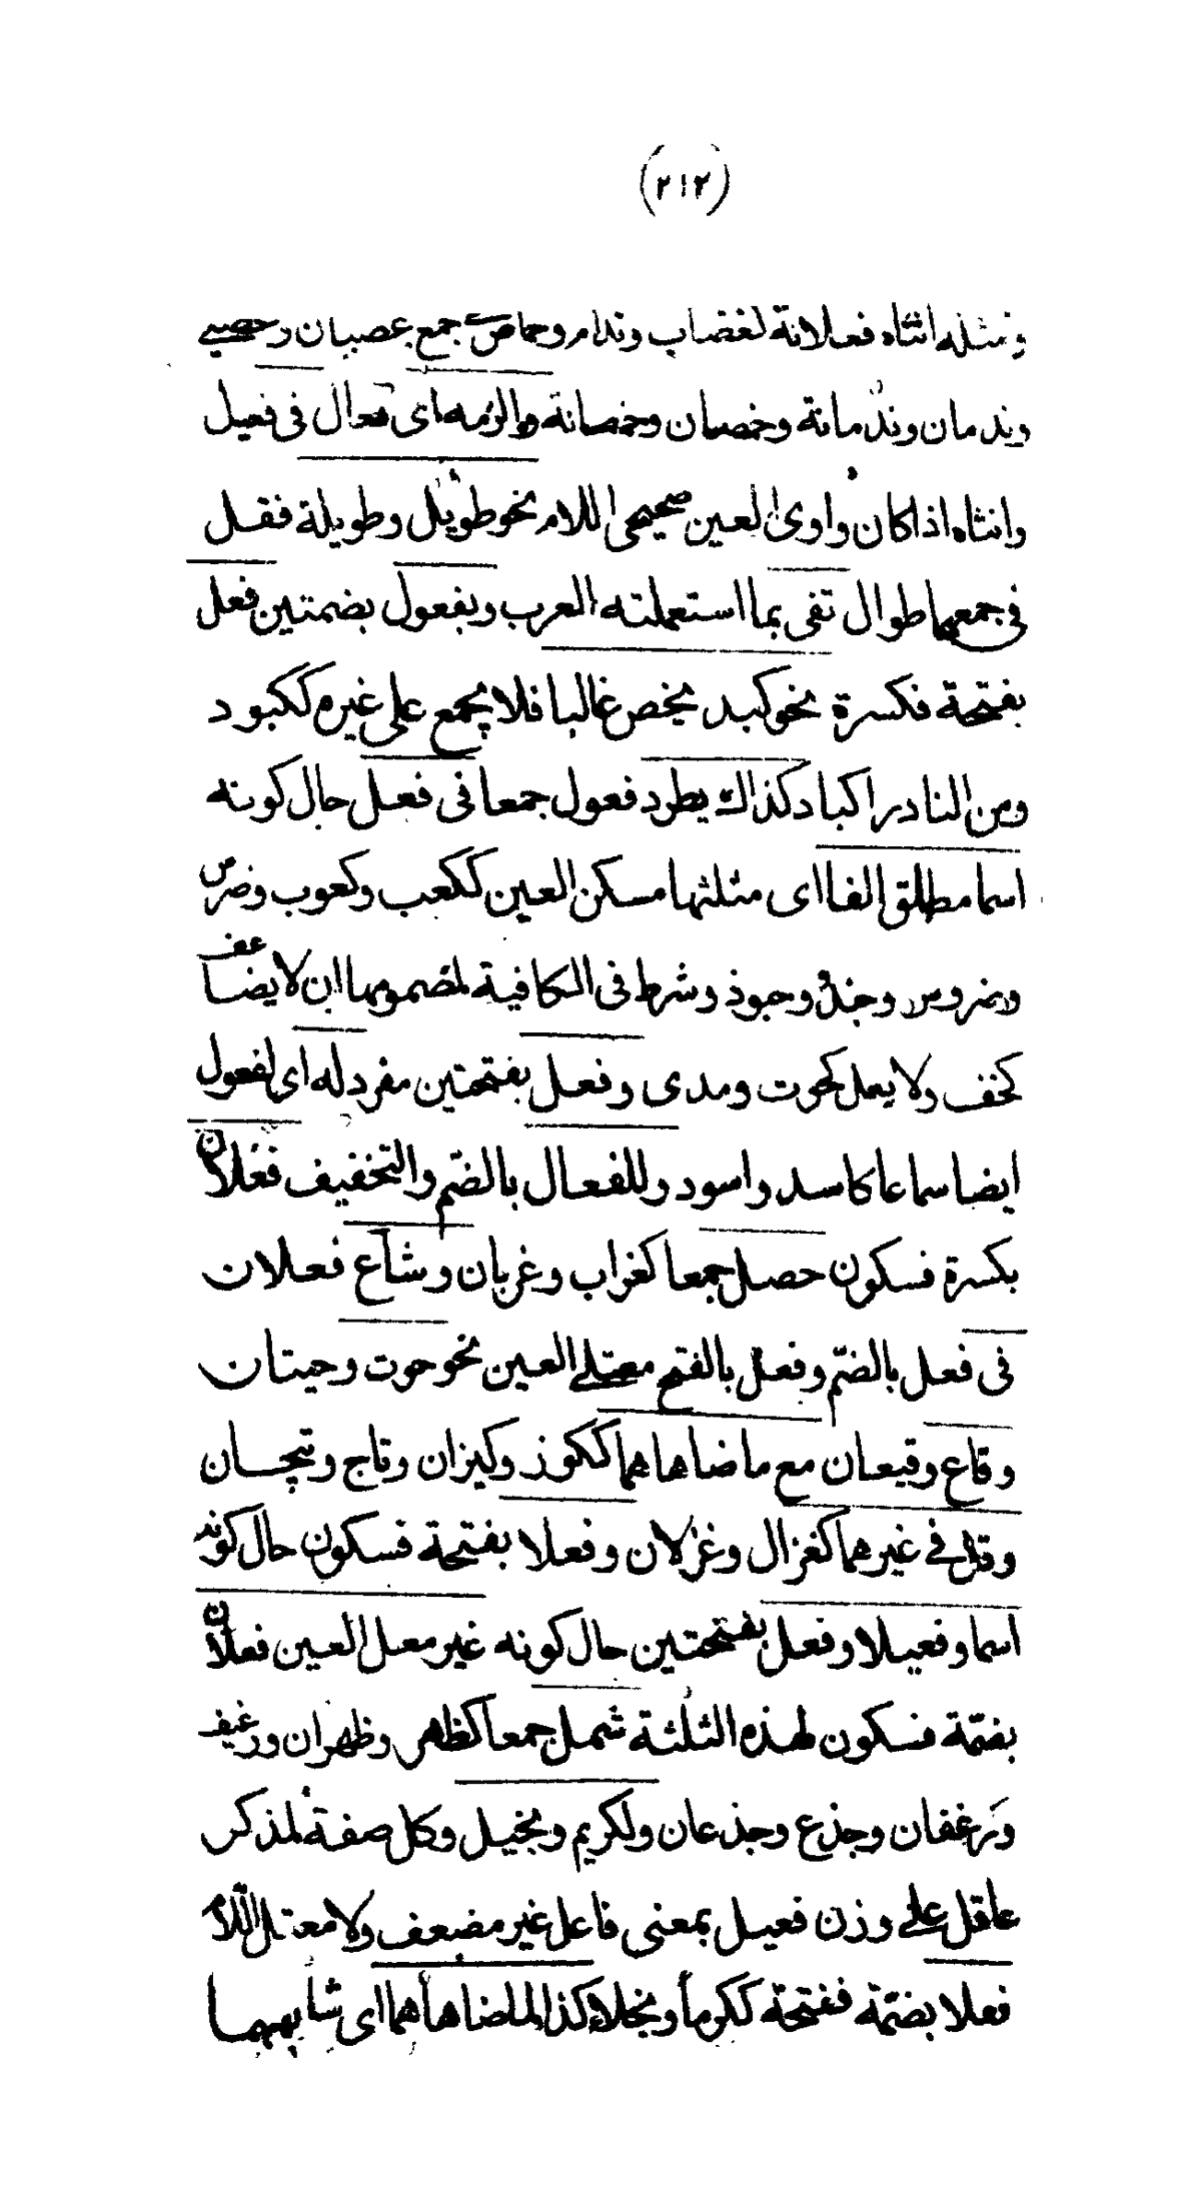 (٢١٢)
ومثله انثاه فعلانة لغضاب وندام وخماص جمع غضبان وغضبى
وندمان وندمانة وخمصان وخمصانة والزمه اى فعال فى فعيل
وانثاه اذا كان واوى العين صحيحى اللام نحو طويل وطويلة فقل
فى جمعهما طوال تفى بما استعملته العرب وبفعول بضمتين فعل
بفتحة فكسرة نحو كبد يخص غالبا فلا يجمع على غيره ككبود
ومن النادر اكباد كذاك يطرد فعول جمعا فى فعل حال كونه
اسما مطلق الفا اى مثلثها مسكن العين ككعب وكعوب وضرس
وضروس وجند وجنود وشرط فى الكافية لمضمومها ان لا يضاعف
كخف ولا يعل كحوت ومدى وفعل بفتحتين مفرد له اى لفعول
ايضا سماعا كاسد واسود وللفعال بالضم والتخفيف فعلان
بكسرة فسكون حصل جمعا كغراب وغربان وشاع فعلان
فى فعل بالضم وفعل بالفتح معتلى العين نحو حوت وحيتان
وقاع وقيعان مع ما ضاهاهما ككوز وكيزان وتاج وتيجان
وقل فى غيرهما كغزال وغزلان وفعلا بفتحة فسكون حال كونه
اسما وفعيلا وفعل بفتحتين حال كونه غير معل العين فعلان
بضمة فسكون لهذه الثلثة شمل جمعا كظهر وظهران ورغيف
ورغفان وجذع وجذعان ولكريم وبخيل وكل صفة لمذكر
عاقل على وزن فعيل بمعنى فاعل غير مضعف ولا معتل اللام
فعلا بضمة ففتحة ككرما وبخلا كذا لما ضاهاهما اى شابههما